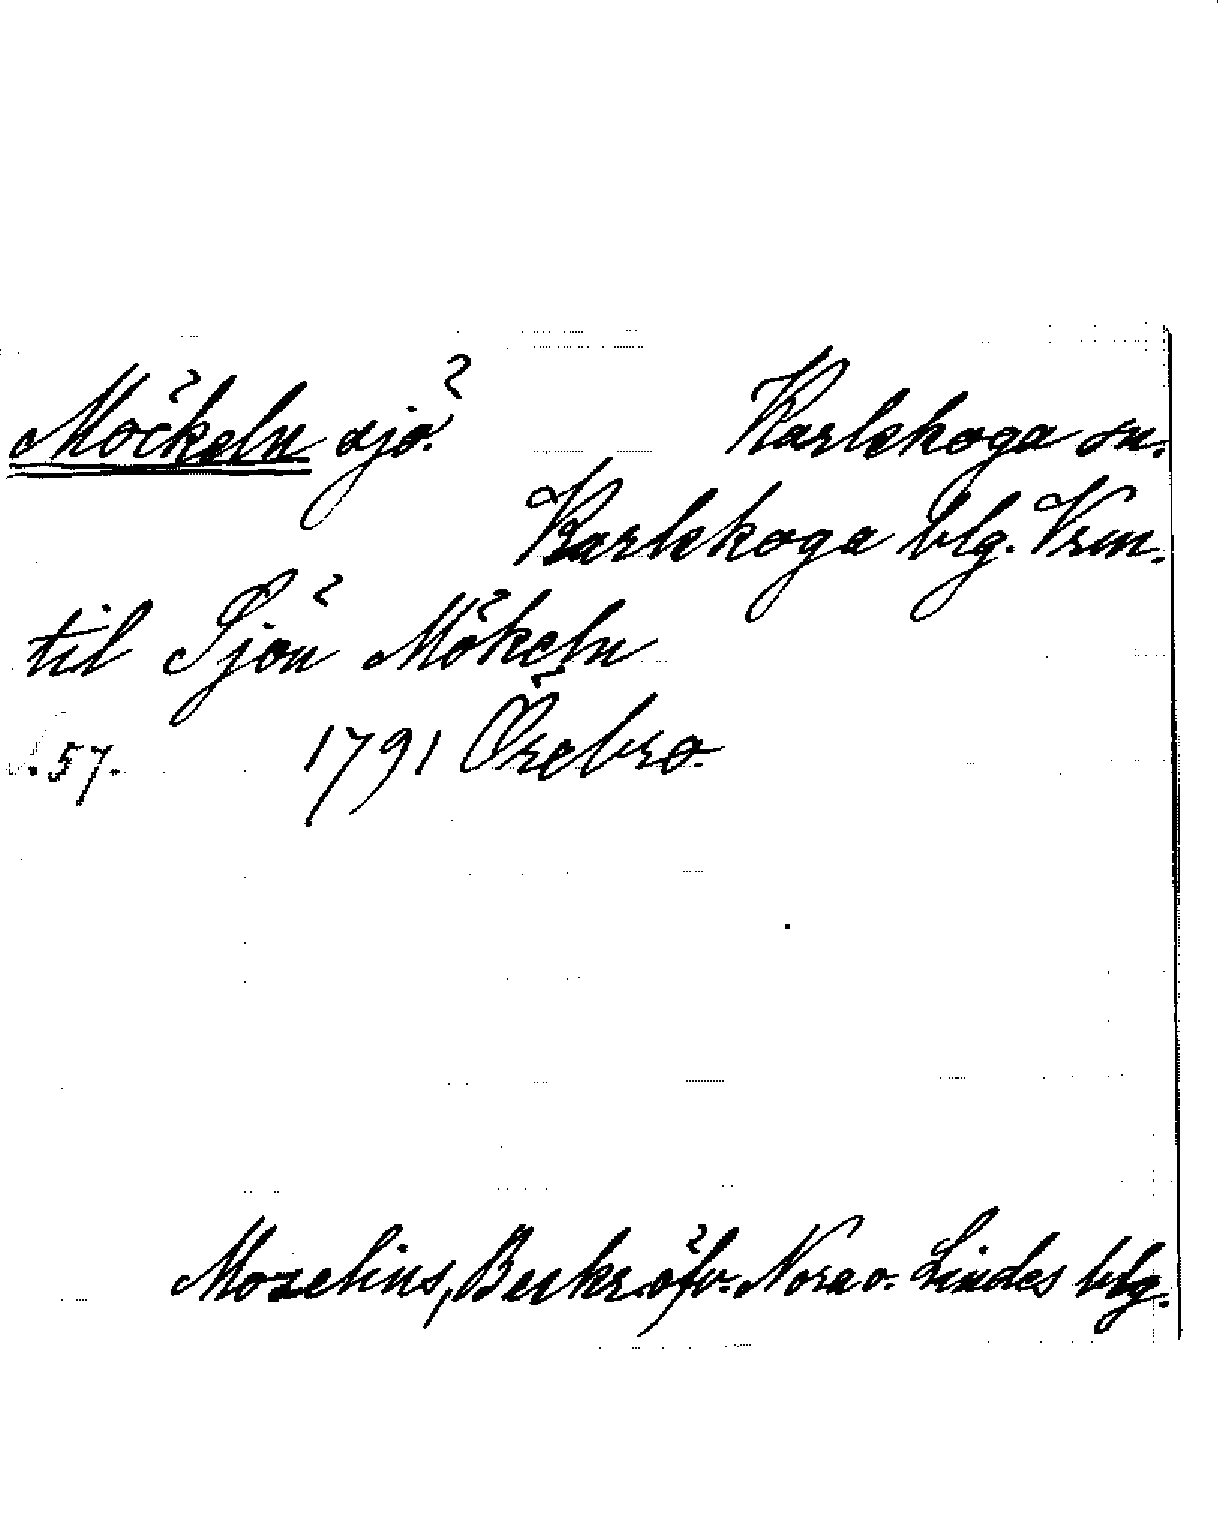 Möckeln sjö. Karlskoga sn.
Karlskoga blg. Vrm.
til Sjön Mökeln
S. 57. 1791 Örebro.
Mozelius, Beskr. öfv. Nora o. Lindes blg.